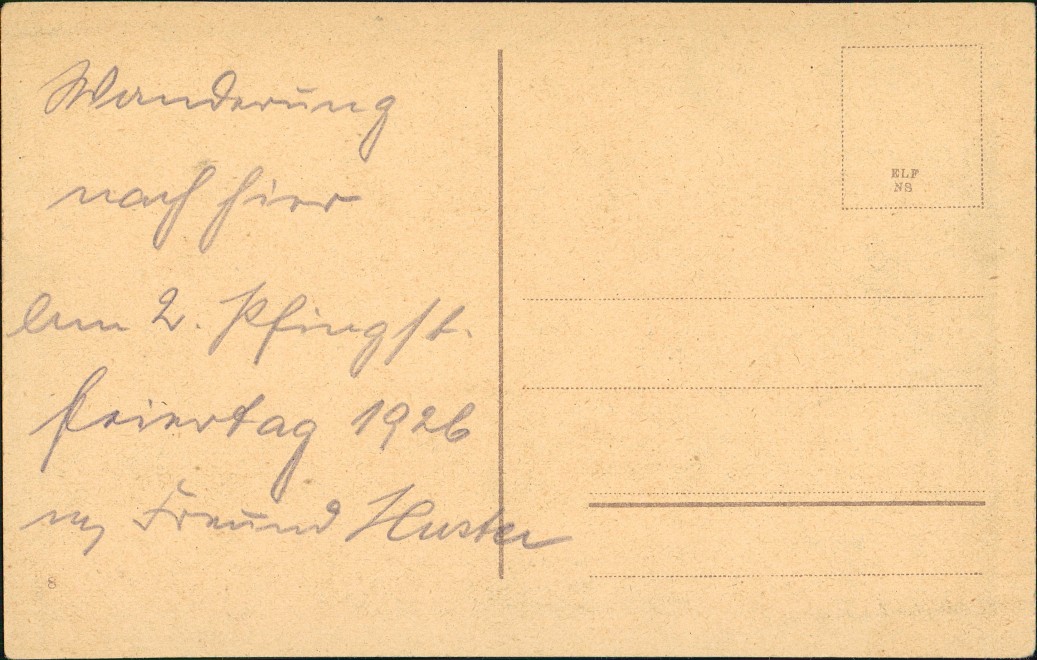 Wanderung
nach hier
am 2. Pfingst-
feiertag 1926
m. Freund Huster
ELF
NS
8